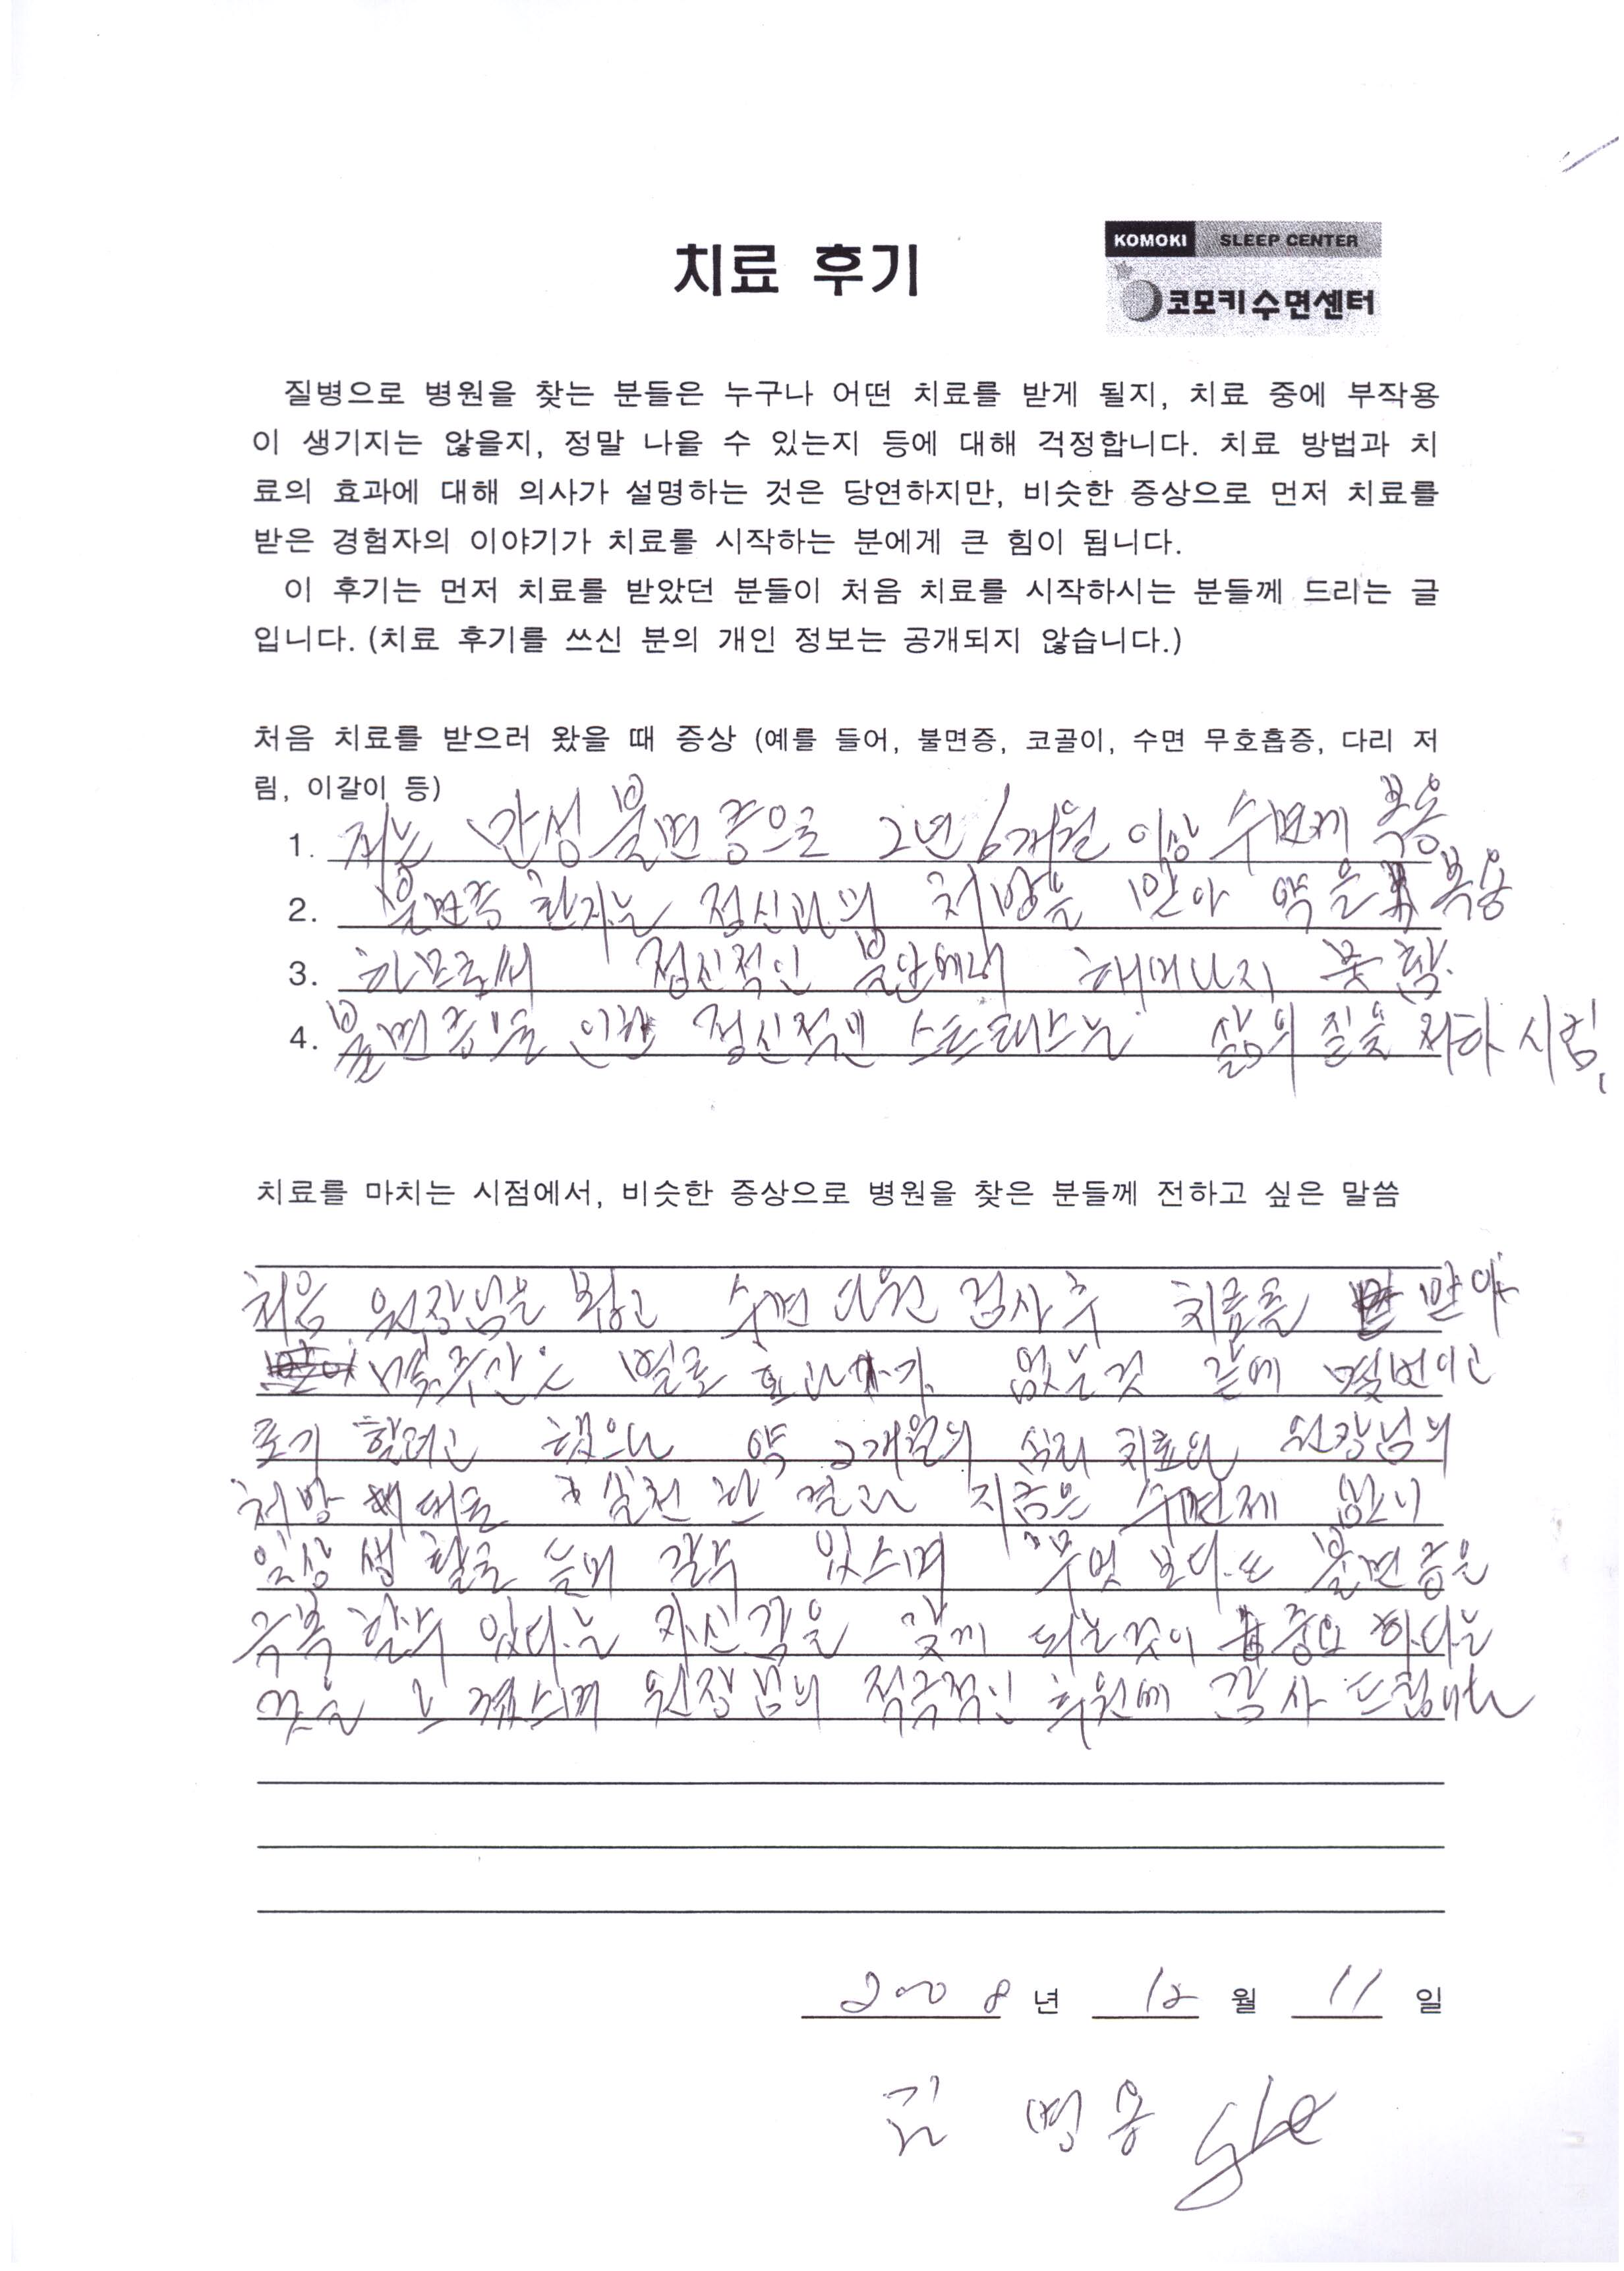 치료 후기
KOMOKI SLEEP CENTER
코모키수면센터
질병으로 병원을 찾는 분들은 누구나 어떤 치료를 받게 될지, 치료 중에 부작용
이 생기지는 않을지, 정말 나을 수 있는지 등에 대해 걱정합니다. 치료 방법과 치
료의 효과에 대해 의사가 설명하는 것은 당연하지만, 비슷한 증상으로 먼저 치료를
받은 경험자의 이야기가 치료를 시작하는 분에게 큰 힘이 됩니다.
이 후기는 먼저 치료를 받았던 분들이 처음 치료를 시작하시는 분들께 드리는 글
입니다. (치료 후기를 쓰신 분의 개인 정보는 공개되지 않습니다.)
처음 치료를 받으러 왔을 때 증상 (예를 들어, 불면증, 코골이, 수면 무호흡증, 다리 저
림, 이갈이 등)
1. 저는 만성 불면증으로 2년 6개월 이상 수면제 복용
2. 불면증 환자는 정신과의 처방을 받아 약을 복용
3. 하므로써 정신적인 불안에서 헤어나지 못함.
4. 불면증으로 인한 정신적인 스트레스는 삶의 질을 저하 시킴.
치료를 마치는 시점에서, 비슷한 증상으로 병원을 찾은 분들께 전하고 싶은 말씀
처음 원장님을 뵙고 수면 다원 검사 후 치료를 받아
몇주간은 별로 효과가 없는것 같에 몇번이고
포기 할려고 했으나 약 2개월의 심리 치료와 원장님의
처방 대로 실천 한 결과 지금은 수면제 없이
일상 생활로 돌아 갈수 있으며 무엇 보다도 불면증은
극복 할수 있다는 자신감을 갖게 되는것이 중요 하다는
것을 느꼈으며 원장님의 적극적인 후원에 감사 드립니다
2008 년 12 월 11 일
김 명 용